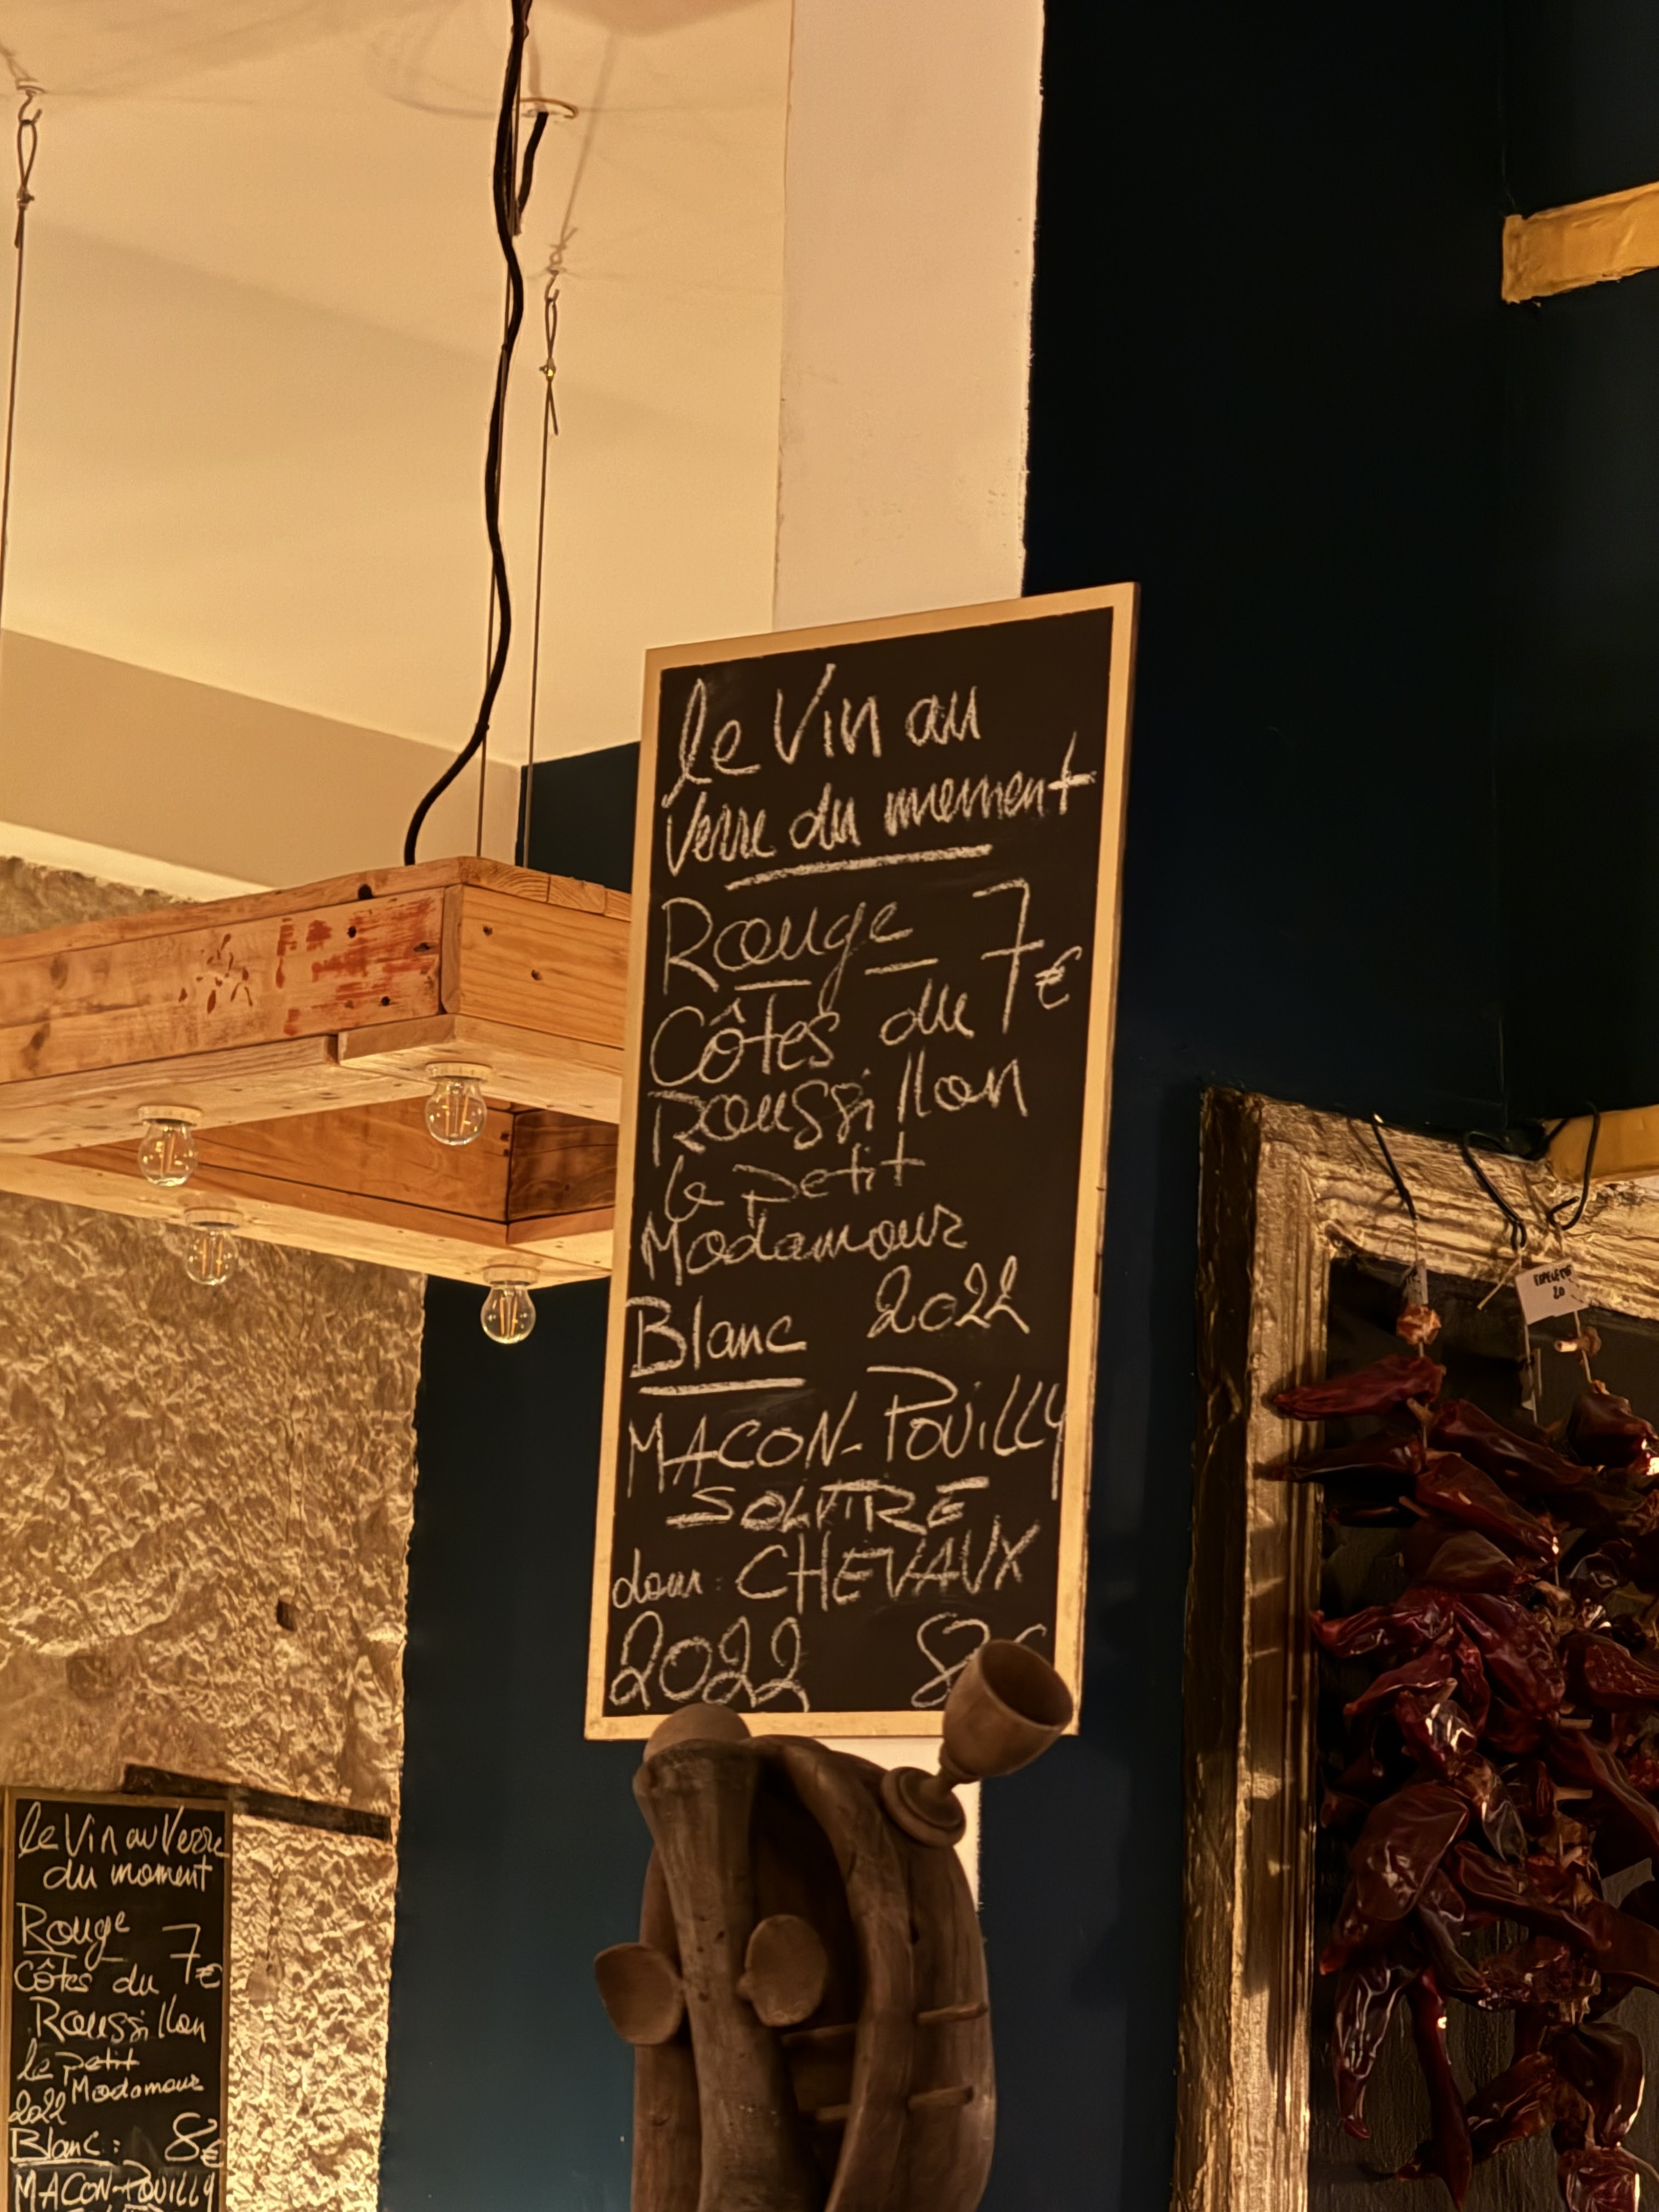 le Vin au
Verre du moment
Rouge 7€
Côtes du
Roussillon
le petit
Modamour
2022
Blanc
MACON-POUILLY
SOLUTRE
dom: CHEVAUX
2022 8€
le Vin au Verre
du moment
Rouge 7€
Côtes du
Roussillon
le petit
Modamour
2022
Blanc: 8€
MACON-POUILLY